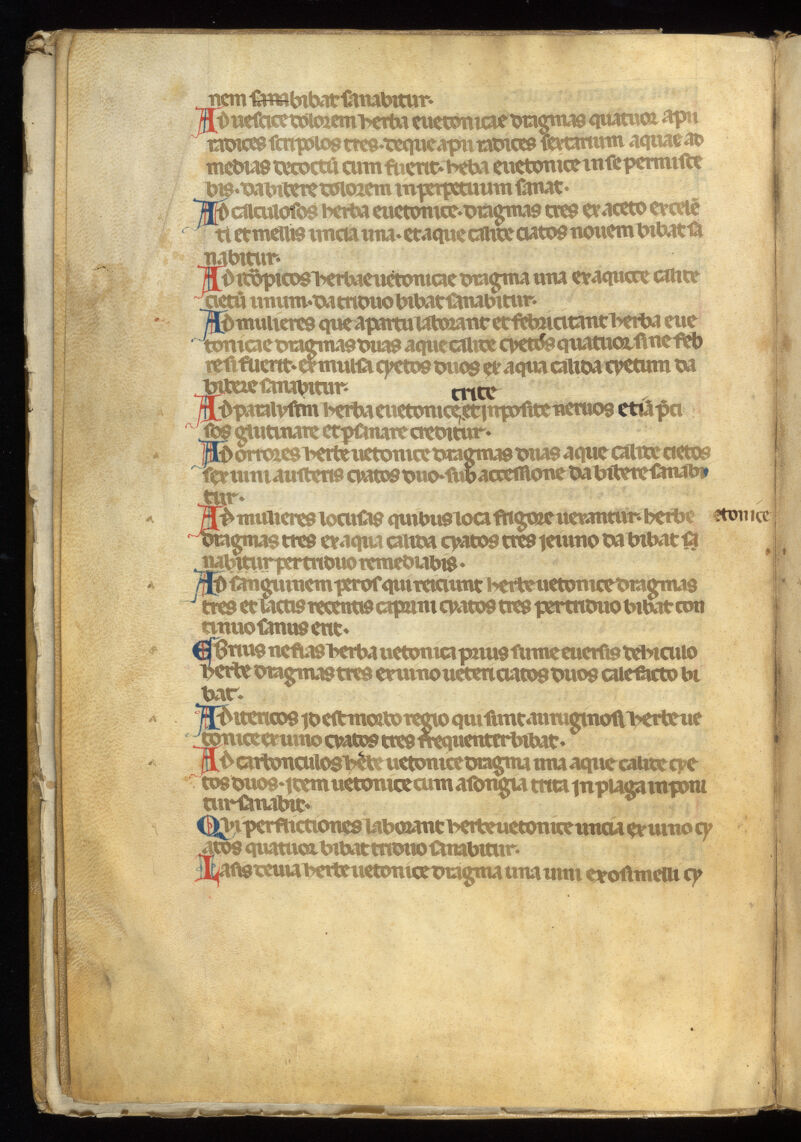 nem sana bibat sanabitur.
Ad uescice dolorem herba euetonicae dragmas quatuor apii
radices scripolos tres. deque apii radices sextarium aquae ad
medias decoctũ cum fuerit. heba euetonice in se permisce
bis. da bibere dolorem inperpetuum sanat.
Ad calculosos herba euetonice. dragmas tres ex aceto ex celẽ
ti et mellis uncia una. et aque calide ciatos nouem bibat sa
nabitur.
Ad idropicos herbae uetonicae dragma una ex aqua calide
cietũ unum. da triduo bibat sanabitur.
Ad mulieres que apartu laborant et febricitant herba eue
tonicae dragmas duas aque calide cyetos quatuor sine feb
re si fuerit. ex mulsa cyetos duos ex aqua calida cyetum da
bibere sanabitur.
Ad paralysin herba euetonice trite et inposite neruos etiã p̃ci
sos glutinare et psanare creditur.
Ad ortores herbe uetonice dragmas duas aque calide cietos
sex uini austeris cyatos duo. sub accessione da bibere sanabi
tur.
Ad mulieres locusas quibus loca frigore uexantur. herbe etonice
dragmas tres ex aqua calida cyatos tres ieiuno da bibat sa
nabitur per triduo remediabis.
Ad sanguinem per os qui reiciunt herbe uetonice dragmas
tres et lactis recentis caprini cyatos tres per triduo bibat con
tinuo sanus erit.
Ebrius ne fias herba uetonica prius sume euersis dehiculo
herbe dragmas tres ex uino ueteri ciatos duos calefacto bi
bat.
Ad itericos id est morbo regio qui sunt auruginosi herbe ue
tonice ex uino cyatos tres frequenter bibat.
Ad carbonculos herbe uetonice dragma una aque calide cye
tos duos. item uetonice cum asongia trita in plaga inponi
tur sanabit.
Qui perflictiones laborant herbe uetonice uncia ex uino cy
atos quatuor bibat triduo sanabitur.
Lasis deuia herbe uetonice dragma una uini ex osimelli cy